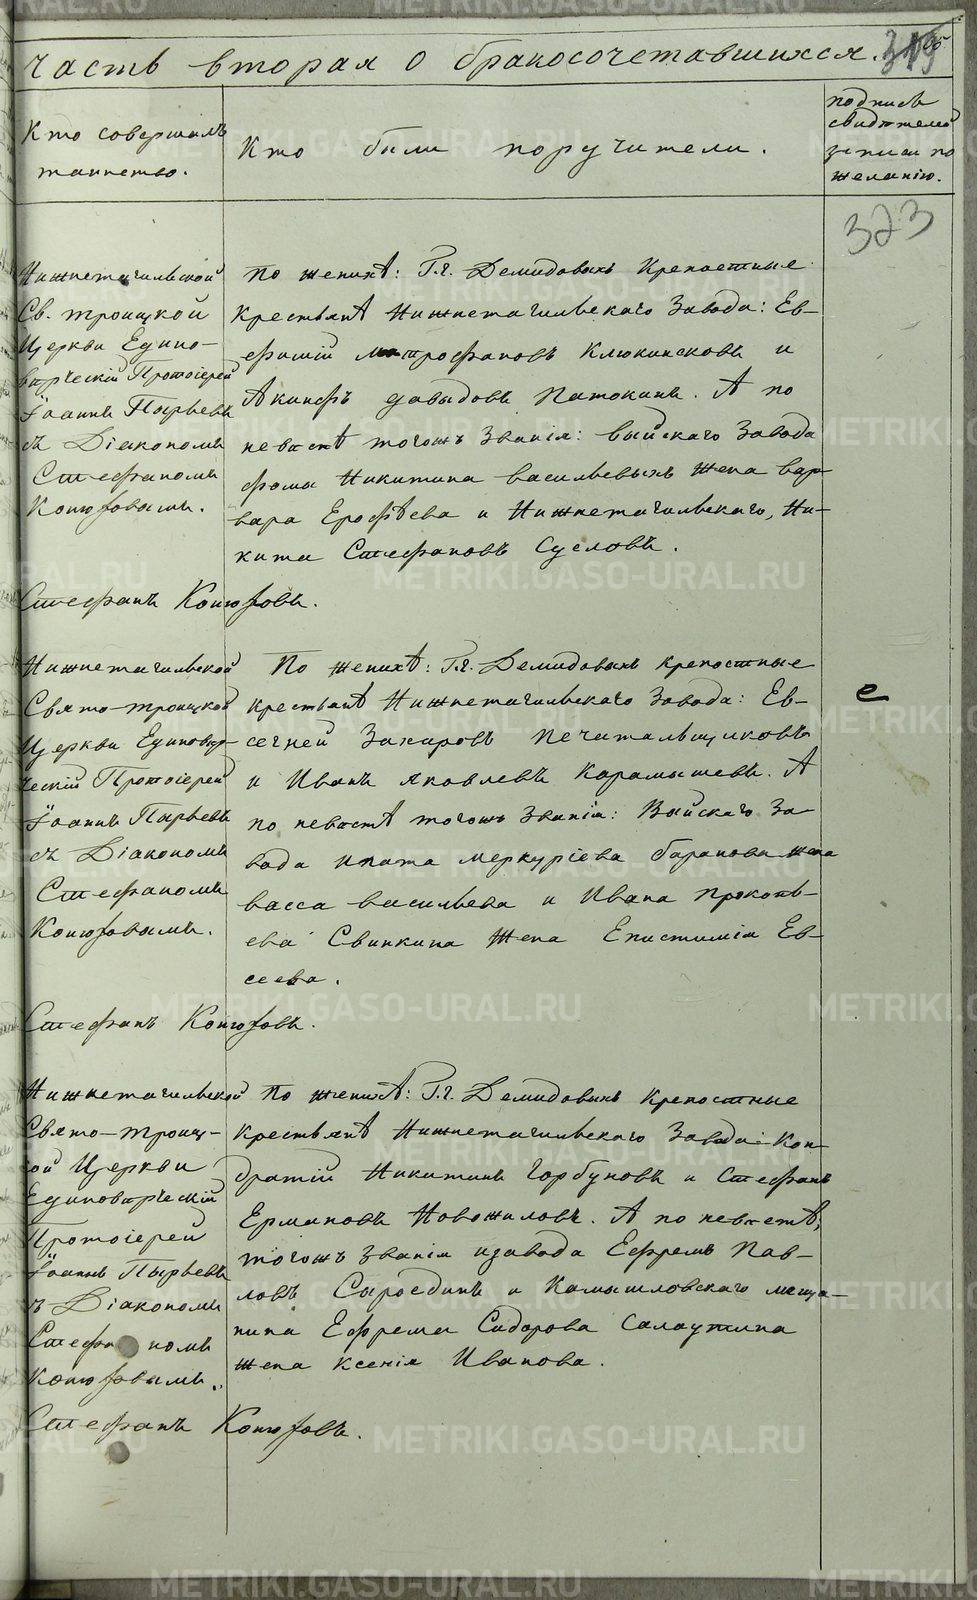 Часть вторая о бракосочетавшихся.
Кто совершилъ
таинство.
Кто были поручители.
подпись
свидѣтелей
записи по
желанію.
323
Нижнетагильской
Св. Троицкой
Церкви Едино-
вѣрческій Протоіерей
Іоаннъ Пырьевъ
съ Діакономъ
Стефаномъ
Конюховымъ.
По женихѣ: Г.г. Демидовыхъ Крепостные
Крестьянѣ Нижнетагильскаго Завода: Ев-
фимій Митрофановъ Клюкинсковъ и
Акинфъ давыдовъ Патокинъ. А по
невѣстѣ тогожъ Званія: Выйскаго Завода
фомы Никитина васильевыхъ Жена вар-
вара Ерофѣева и Нижнетагильскаго, Ни-
кита Стефановъ Сусловъ.
Стефанъ Конюховъ.
Нижнетагильской
Свято-Троицкой
Церкви Единовѣр-
ческій Протоіерей
Іоаннъ Пырьевъ
съ Діакономъ
Стефаномъ
Конюховымъ.
По женихѣ: Г.г. Демидовыхъ крепостные
крестьянѣ Нижнетагильскаго Завода: Ев-
сегней Захаровъ Печатальщиковъ
и Иванъ яковлевъ Карамышевъ. А
по невѣстѣ тогожъ Званія: Выйскаго За-
вода игната меркуріева баранова жена
васса васильева и Ивана Прокопь-
ева Свинкина Жена Епистимія Ев-
сеева.
е
Стефанъ Конюховъ.
Нижнетагильской
Свято-Троиц-
кой Церкви
Единовѣрческій
Протоіерей
Іоаннъ Пырьевъ
съ Діакономъ
Стефаномъ
Конюховымъ.
По женихѣ: Г.г. Демидовыхъ Крепостные
Крестьянѣ Нижнетагильскаго Завода: Кон-
дратій Никитинъ Горбуновъ и Стефанъ
Ермановъ Новожиловъ. А по невѣстѣ,
тогожъ Званія и завода Ефремъ Пав-
ловъ Сыроединъ и Камышловскаго меща-
нина Ефрема Сидорова Салаутина
жена Ксенія Иванова.
Стефанъ Конюховъ.
METRIKI.GASO-URAL.RU